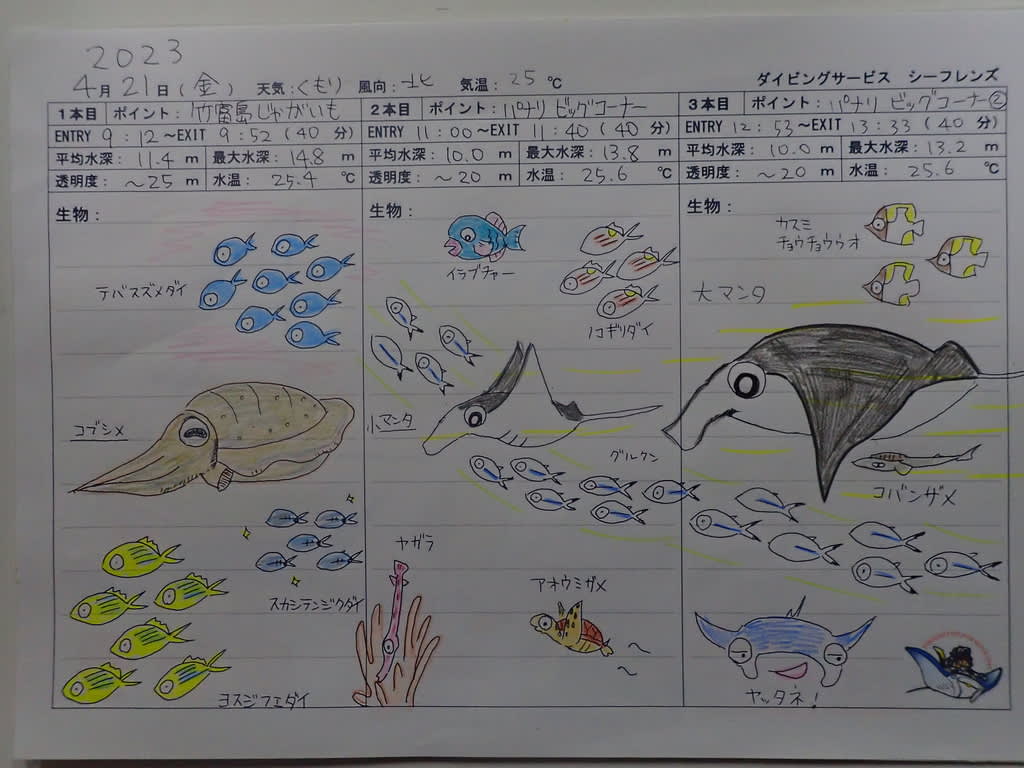 2023
4月21日(金) 天気:くもり 風向:北 気温:25℃
ダイビングサービス シーフレンズ
1本目 ポイント:竹富島じゃがいも
ENTRY 9:12~EXIT 9:52(40分)
平均水深:11.4m 最大水深:14.8m
透明度:~25m 水温:25.4℃
生物:
テバスズメダイ
コブシメ
スカシテンジクダイ
ヨスジフエダイ
2本目 ポイント:パナリ ビッグコーナー
ENTRY 11:00~EXIT 11:40(40分)
平均水深:10.0m 最大水深:13.8m
透明度:~20m 水温:25.6℃
生物:
イラブチャー
ノコギリダイ
小マンタ
グルクン
ヤガラ
アオウミガメ
3本目 ポイント:パナリ ビッグコーナー②
ENTRY 12:53~EXIT 13:33(40分)
平均水深:10.0m 最大水深:13.2m
透明度:~20m 水温:25.6℃
生物:
カスミ
チョウチョウウオ
大マンタ
コバンザメ
ヤッタネ!